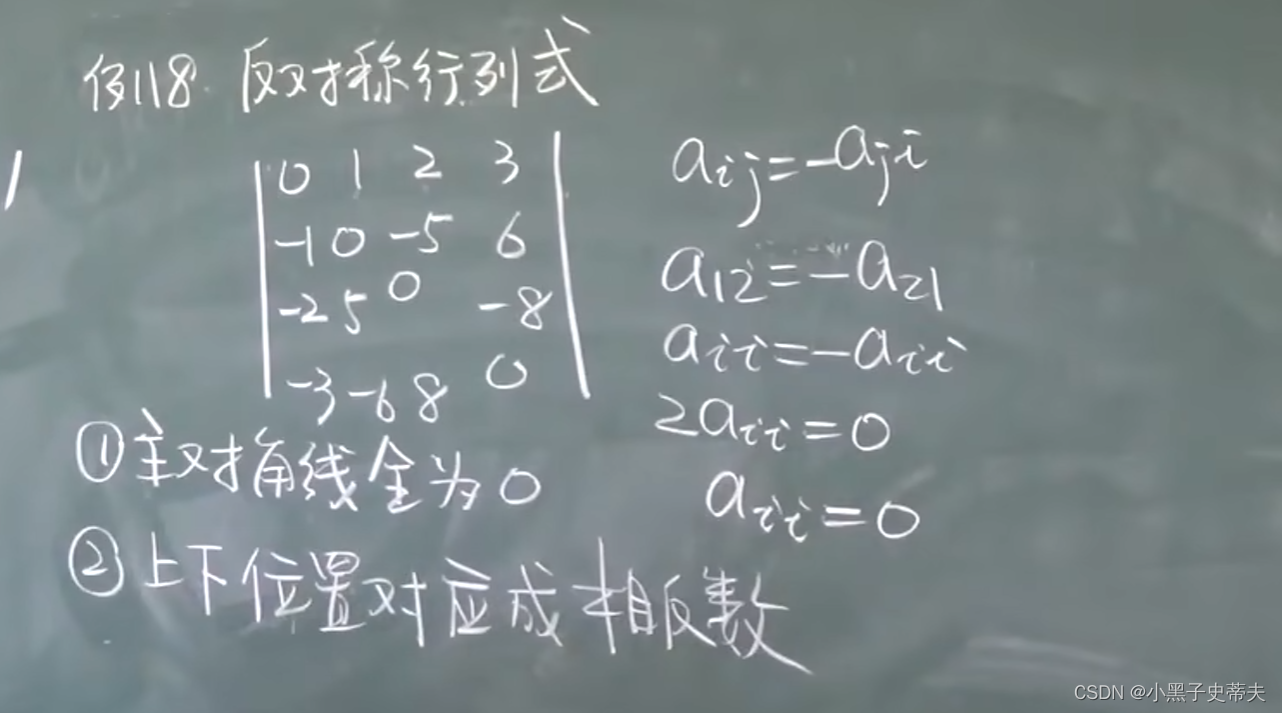 例18 反对称行列式
0 1 2 3
-1 0 -5 6
-2 5 0 -8
-3 -6 8 0
aij=-aji
a12=-a21
aii=-aii
2aii=0
aii=0
①主对角线全为0
②上下位置对应成相反数
CSDN @小黑子史蒂夫